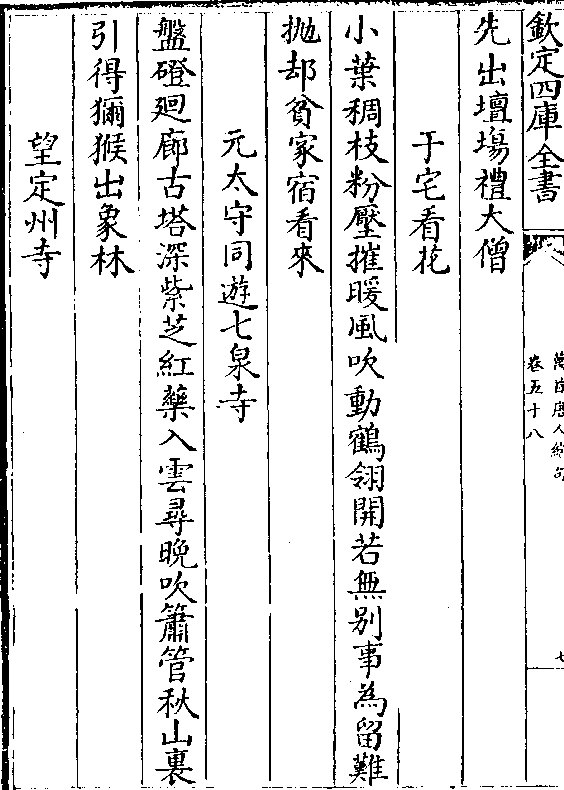 欽定四庫全書
卷五十八
七
先出壇場禮大僧
于宅看花
小葉稠枝粉壓摧暖風吹動鶴翎開若無别事為留難
抛却貧家宿看來
元太守同遊七泉寺
盤磴廻廊古塔深紫芝紅藥入雲尋晚吹簫管秋山裏
引得獼猴出象林
望定州寺